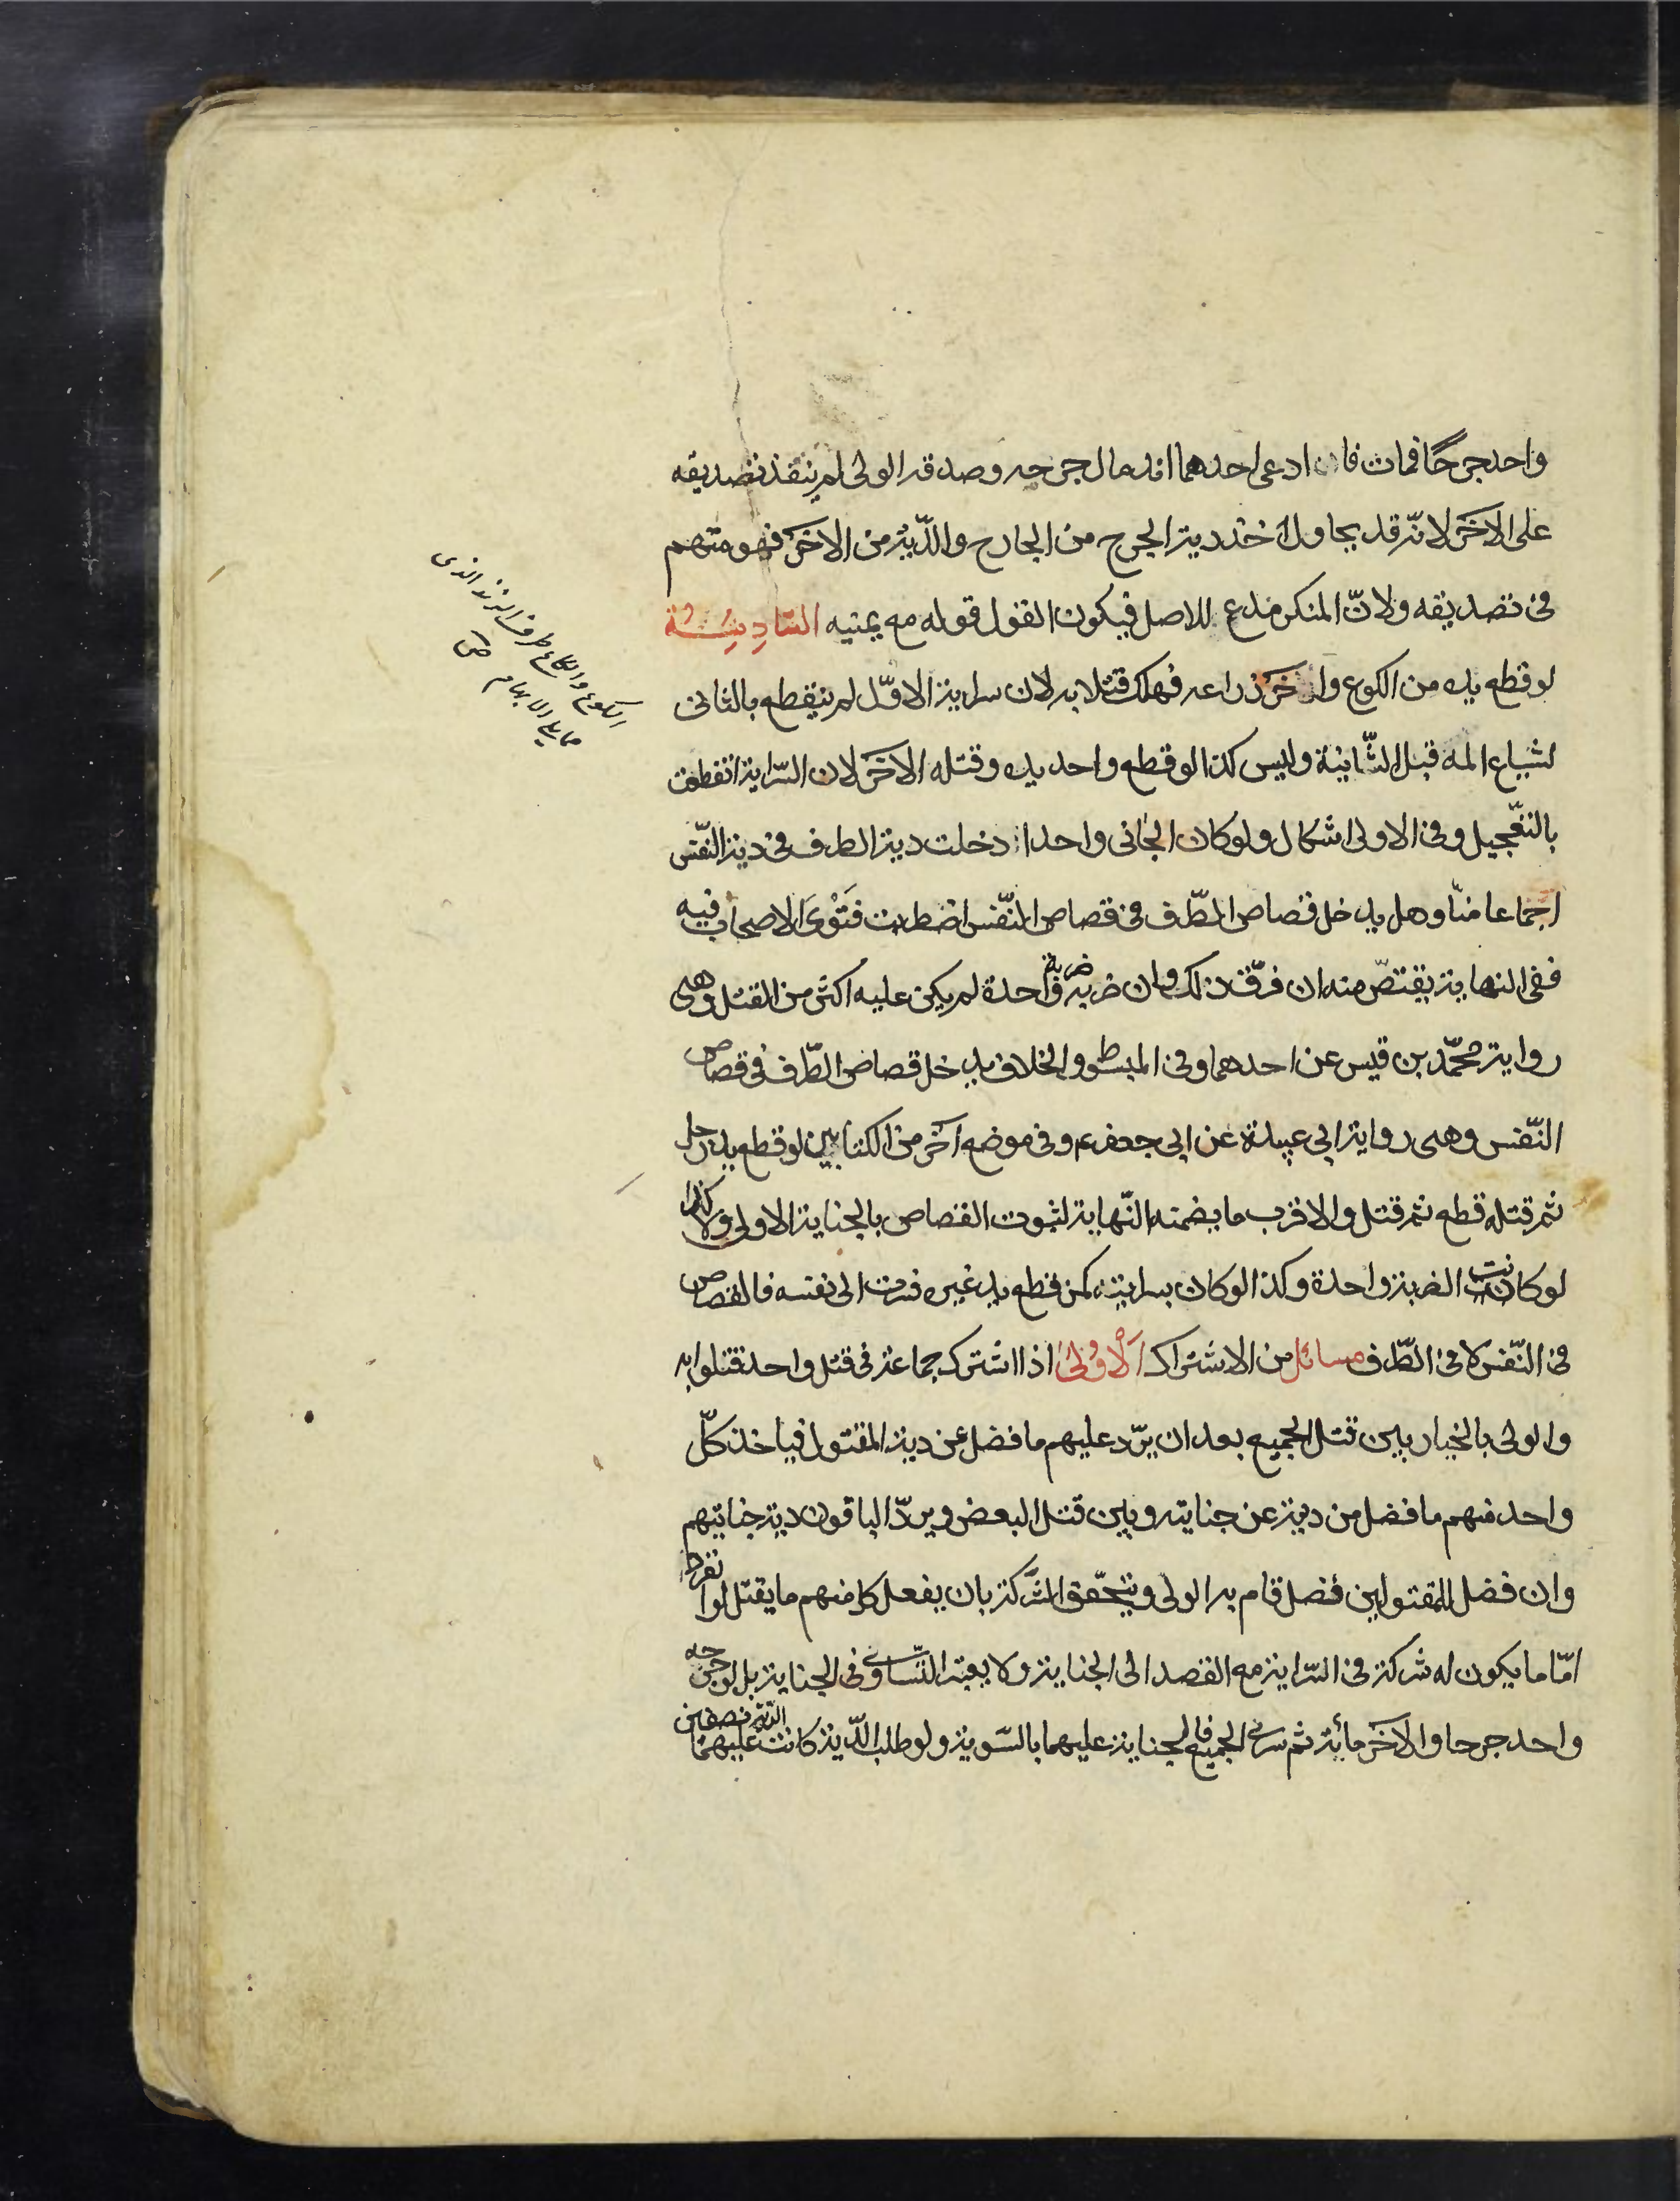 واحد جرحًا فمات فان ادعى احدهما اندمال جرحه وصدقه الولى لم ينفذ تصديقه
على الآخر لانّه قد يحاول أخذ دية الجرح من الجارح والدّية من الآخر فهو متهم
فى تصديقه ولانّ المنكر مدع للاصل فيكون القول قوله مع يمينه السّادِسَة
لو قطع يده من الكوع وآخر ذراعه فهلك قتلا به لان سراية الاوّل لم ينقطع بالثانى
لشياع المه قبل الثّانية وليس كذا لو قطع واحد يده وقتله الآخر لان السّراية انقطعت
بالتعّجيل وفى الاولى اشكال ولو كان الجانى واحدا دخلت دية الطرف فى دية النّفس
اجماعا منّا وهل يدخل قصاص الطّرف فى قصاص النّفس اضطربت فَتْوىَ الاصحاب فيه
ففى النهاية يقتصّ منه ان فرّق ذلك وان ضربه ضربة واحدة لم يكن عليه اكثر من القتل وهى
رواية محمّد بن قيس عن احدهما وفى المبسوط والخلاف يدخل قصاص الطّرف فى قصاص
النّفس وهى رواية ابى عبيدة عن ابى جعفر ع وفى موضع آخر من الكتابين لو قطع يد رجل
ثم قتله قطع ثم قتل والاقرب ما يضمنه النّهاية لثبوت القصاص بالجناية الاولى ولا كذا
لو كانت الضربة واحدة وكذا لو كان بسراية كمن قطع يد غيره فسرت الى نفسه فالقصاص
فى النّفس لا فى الطّرف مسائل من الاشتراك اَلاُولىٰ اذا اشترك جماعة فى قتل واحد قتلوا به
والولى بالخيار بين قتل الجميع بعد ان يرّد عليهم ما فضل عن دية المقتول فياخذ كلّ
واحد منهم ما فضل من دية عن جنايته وبين قتل البعض ويردّ الباقون دية جنايتهم
وان فضل للمقتولين فضل قام به الولى ويتحّقق الشّركة بان يفعل كل منهم ما يقتل لو انفرد
امّا ما يكون له شركة فى السّراية مع القصد الى الجناية ولا يعتبر التّساوى فى الجناية بل لو جرحه
واحد جرحا والآخر مائة ثم سرى الجميع فالجناية عليهما بالسّوية ولو طلب الدّية كانت عليهما الدّية نصفين
الكوع والكاع طرف الزند الذى
مما يلى الابهام ص